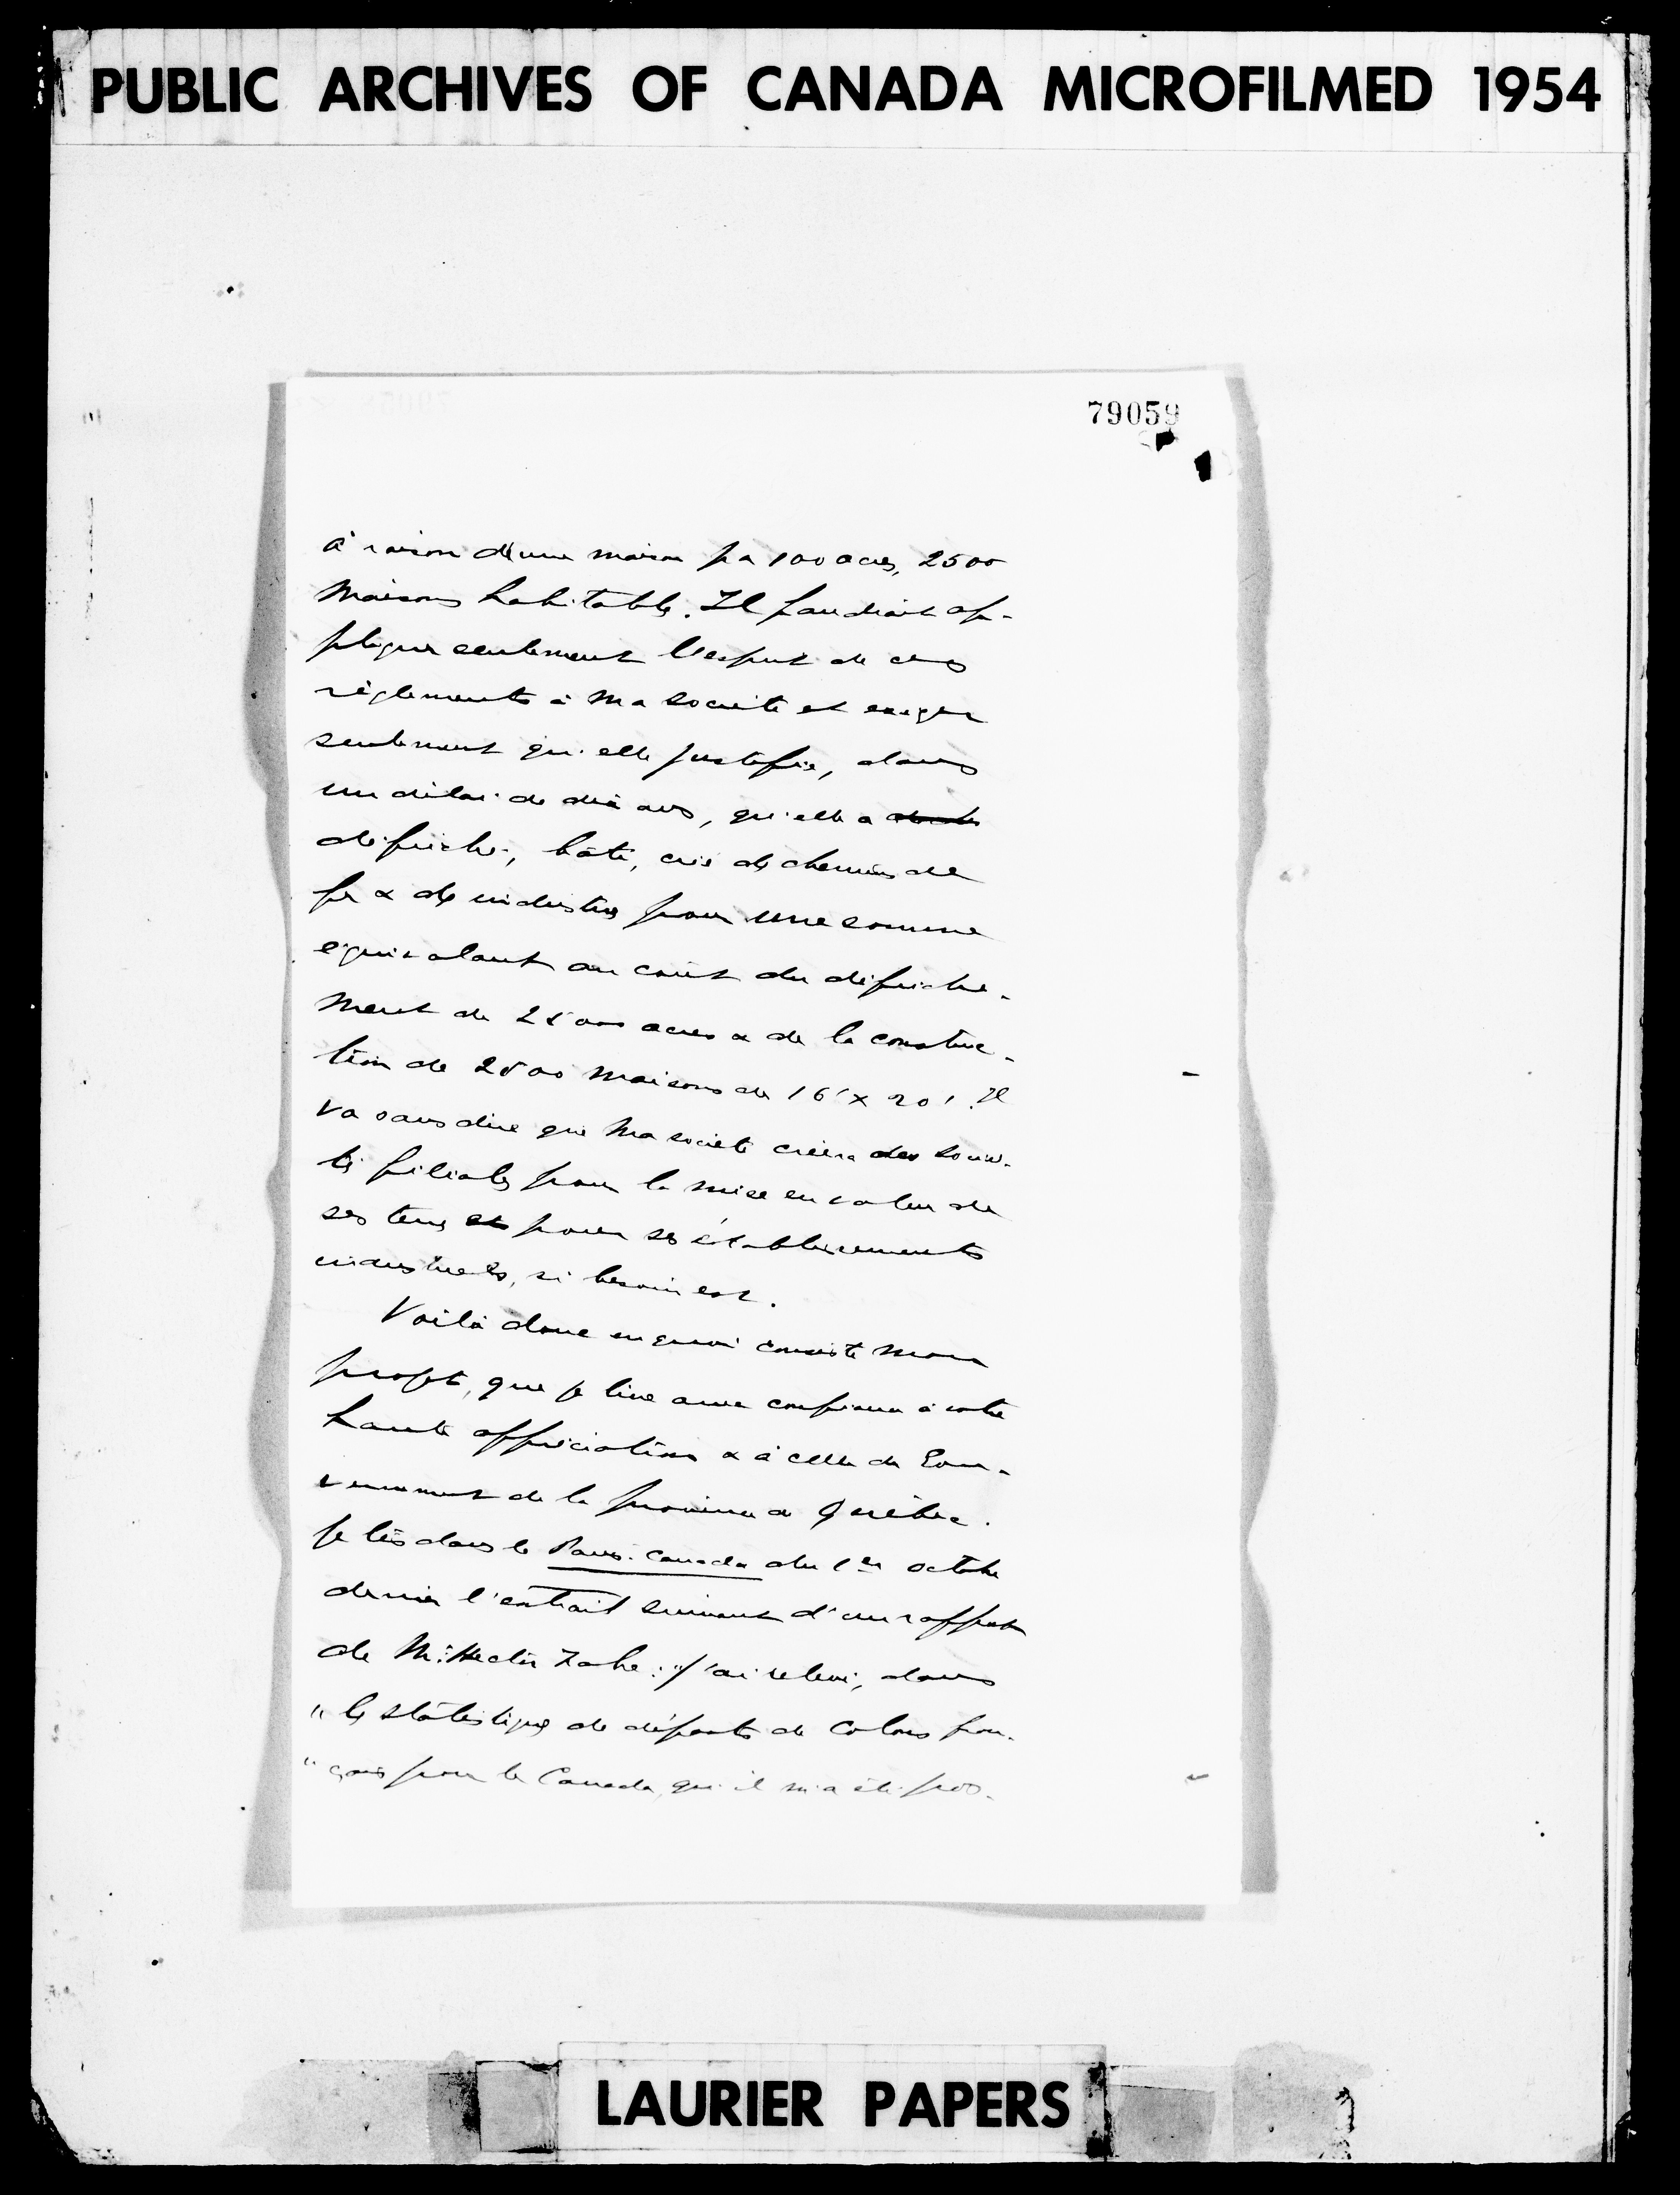 PUBLIC ARCHIVES OF CANADA MICROFILMED 1954
79059
à raison d'une maison par 100 acres, 2500
maisons habitables. Il faudrait ap-
pliquer seulement l'esprit de ces
règlements à ma société et exiger
seulement qu'elle justifie, dans
un délai de dix ans, qu'elle a
défriché, bâti, créé des chemins de
fer & des industries pour une somme
équivalant au coût du défriche-
ment de 25000 acres & de la construc-
tion de 2500 maisons de 16' x 20'. Il
va sans dire que ma société créera des socié-
tés filiales pour la mise en valeur de
ses terres et pour ses établissements
industriels, si besoin est.
Voilà donc en quoi consiste mon
projet, que je livre avec confiance à votre
haute appréciation & à celle du Gou-
vernement de la province de Québec.
Je lis dans le Paris-Canada du 1er octobre
dernier l'extrait suivant d'un rapport
de M. Hector Fabre : "J'ai relevé, dans
" les statistiques de départs de colons fran-
" çais pour le Canada, qu'il m'a été pos-
LAURIER PAPERS